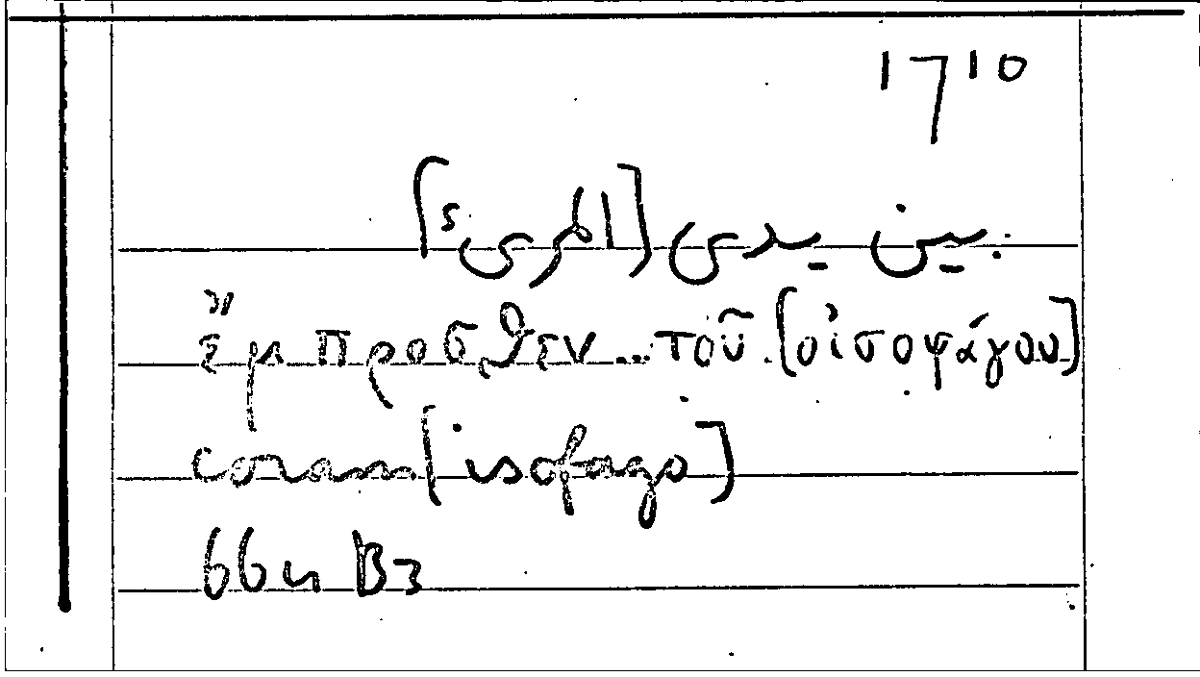 1710
بين يدى [المرىء]
ἔμπροσθεν... τοῦ [οἰσοφάγου]
coram [isofago]
664 B3